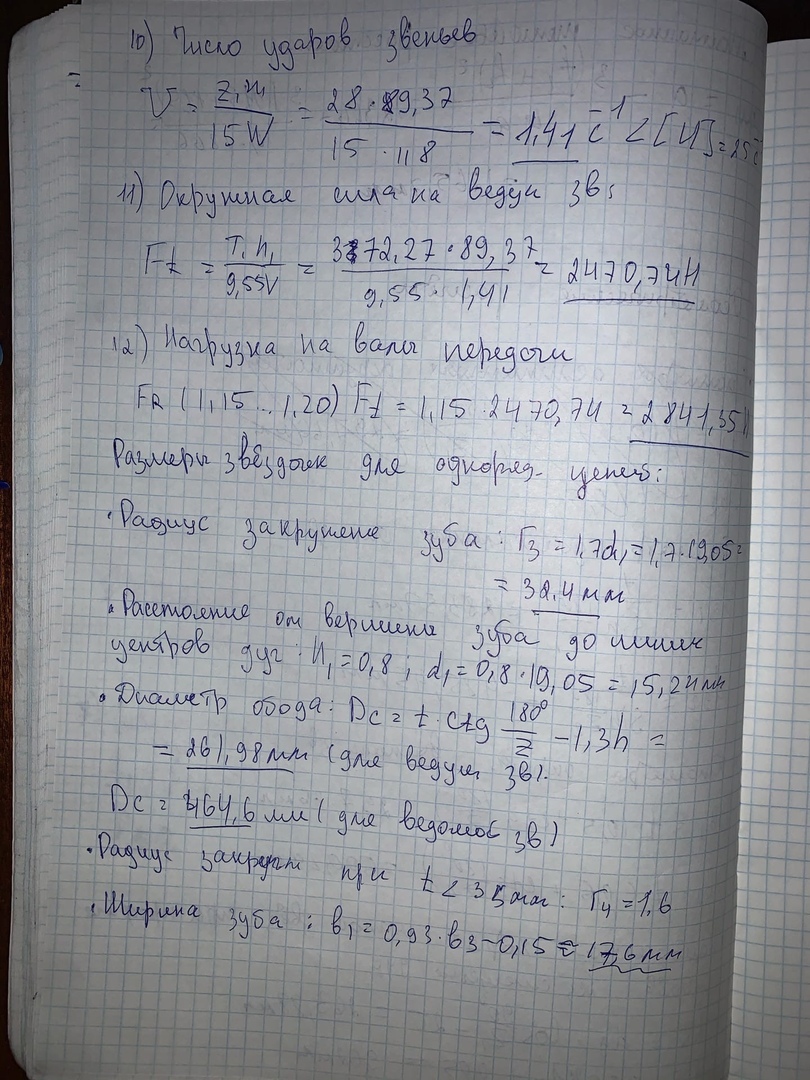 10) Число ударов звеньев
V = z₁n₁ / 15W = 28 · 89,37 / 15 · 118 = 1,41 c⁻¹ < [U] = 25 c
11) Окружная сила на ведущ зв:
Ft = T₁ n₁ / 9,55V = 3372,27 · 89,37 / 9,55 · 1,41 = 2470,74H
12) Нагрузка на валы передачи
FR (1,15...1,20) Ft = 1,15 · 2470,74 = 2841,35H
Размеры звёздочек для одноряд. цепей:
· Радиус закругление зуба : r₃ = 1,7d₁ = 1,7·19,05 =
= 32,4 мм
· Расстояние от вершины зуба до линии
центров дуг : h₁ = 0,8 ; d₁ = 0,8 · 19,05 = 15,24 мм
· Диаметр обода: Dc = t · ctg 180° / z − 1,3h =
= 261,98мм (для ведущ зв).
Dc = 464,6 мм ( для ведомой зв)
· Радиус закругл при t < 35мм : r₄ = 1,6
· Ширина зуба : в₁ = 0,93 · в3 − 0,15 = 17,6 мм